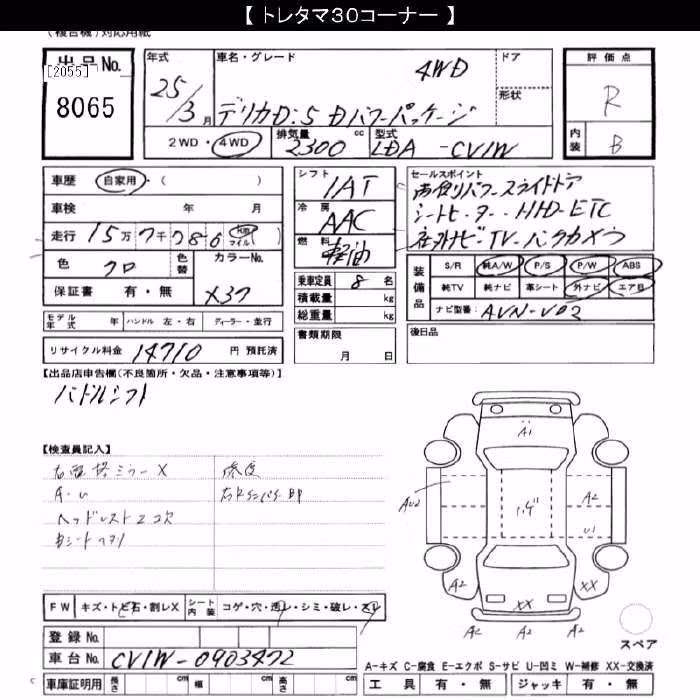 【 トレタマ30コーナー 】
(複合機)対応用紙
出品No.
[2055]
8065
年式
25/3月
車名・グレード
4WD
デリカD:5 Dパワーパッケージ
ドア
形状
評価点
R
内装
B
2WD・4WD
排気量 2300 cc
型式 LDA-CV1W
車歴 自家用・( )
車検 年 月
走行 15万7千786 Km マイル ( )
色 クロ
色替
カラーNo. X37
保証書 有・無
シフト IAT
冷房 AAC
燃料 軽油
乗車定員 8 名
積載量 kg
総重量 kg
書類期限
月 日
セールスポイント
両側パワースライドドア
シートヒーター・HID-ETC
社外ナビ-TV-バックカメラ
装備品
S/R 純A/W P/S P/W ABS
純TV 純ナビ 革シート 外ナビ エアB
ナビ型番: AVN-V02
後日品
モデル年式 年 ハンドル 左・右 ディーラー・並行
リサイクル料金 14710 円 預託済
【出品店申告欄(不良箇所・欠品・注意事項等)】
パドルシフト
【検査員記入】
右電格ミラーX
修復
A・U
ヘッドレスト2コ欠
A1
コゲ
AU2
A2
U1
A2
XX
XX
A2
A2
A2
スペア
FW キズ・トビ石・割レX
シート内装 コゲ・穴・汚レ・シミ・破レ・スレ
登録No.
車台No. CV1W-0903472
車庫証明用 長さ cm 幅 cm 高さ cm
A-キズ C-腐食 E-エクボ S-サビ U-凹ミ W-補修 XX-交換済
工具 有・無 ジャッキ 有・無